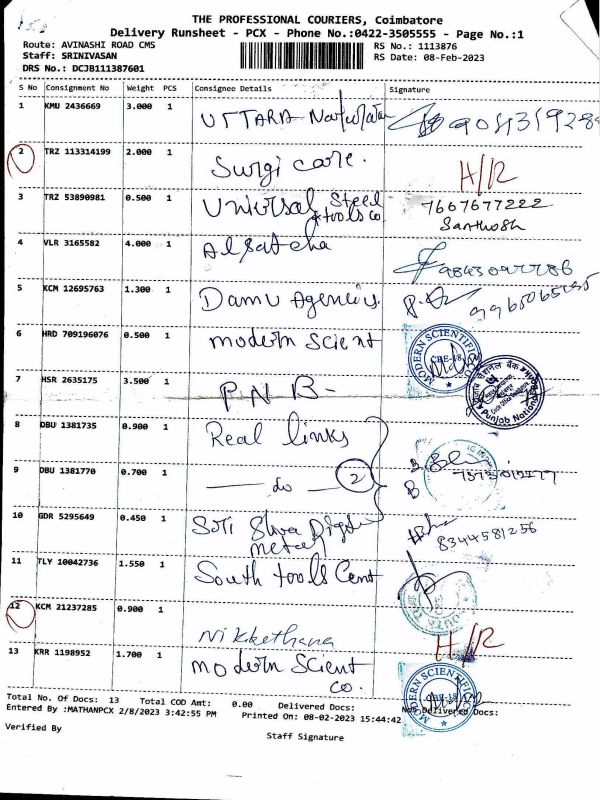 THE PROFESSIONAL COURIERS, Coimbatore
Delivery Runsheet - PCX - Phone No.:0422-3505555 - Page No.:1
Route: AVINASHI ROAD CMS
RS No.: 1113876
Staff: SRINIVASAN
RS Date: 08-Feb-2023
DRS No.: DCJB111387601
S No Consignment No Weight PCS Consignee Details Signature
1 KMU 2436669 3.000 1 UTTARA
2 TRZ 113314199 2.000 1 Surgi care. H/R
3 TRZ 53890981 0.500 1 Universal Steel & tools co. 7667677222
Santhosh
4 VLR 3165582 4.000 1
5 KCM 12695763 1.300 1 Damu Agencies.
6 HRD 709196076 0.500 1 modern Scient MODERN SCIENTIFIC CBE-18
7 HSR 2635175 3.500 1 PNB- Punjab National
8 DBU 1381735 0.900 1 Real links
9 DBU 1381770 0.700 1 — do — 2
10 GDR 5295649 0.450 1 8344581256
11 TLY 10042736 1.550 1 South tools Cent
12 KCM 21237285 0.900 1 Nikkethana H/R
13 KRR 1198952 1.700 1 modern Scient co. MODERN SCIENTIFIC CBE-18
Total No. Of Docs: 13 Total COD Amt: 0.00 Delivered Docs: Non Delivered Docs:
Entered By :MATHANPCX 2/8/2023 3:42:55 PM Printed On: 08-02-2023 15:44:42
Verified By
Staff Signature